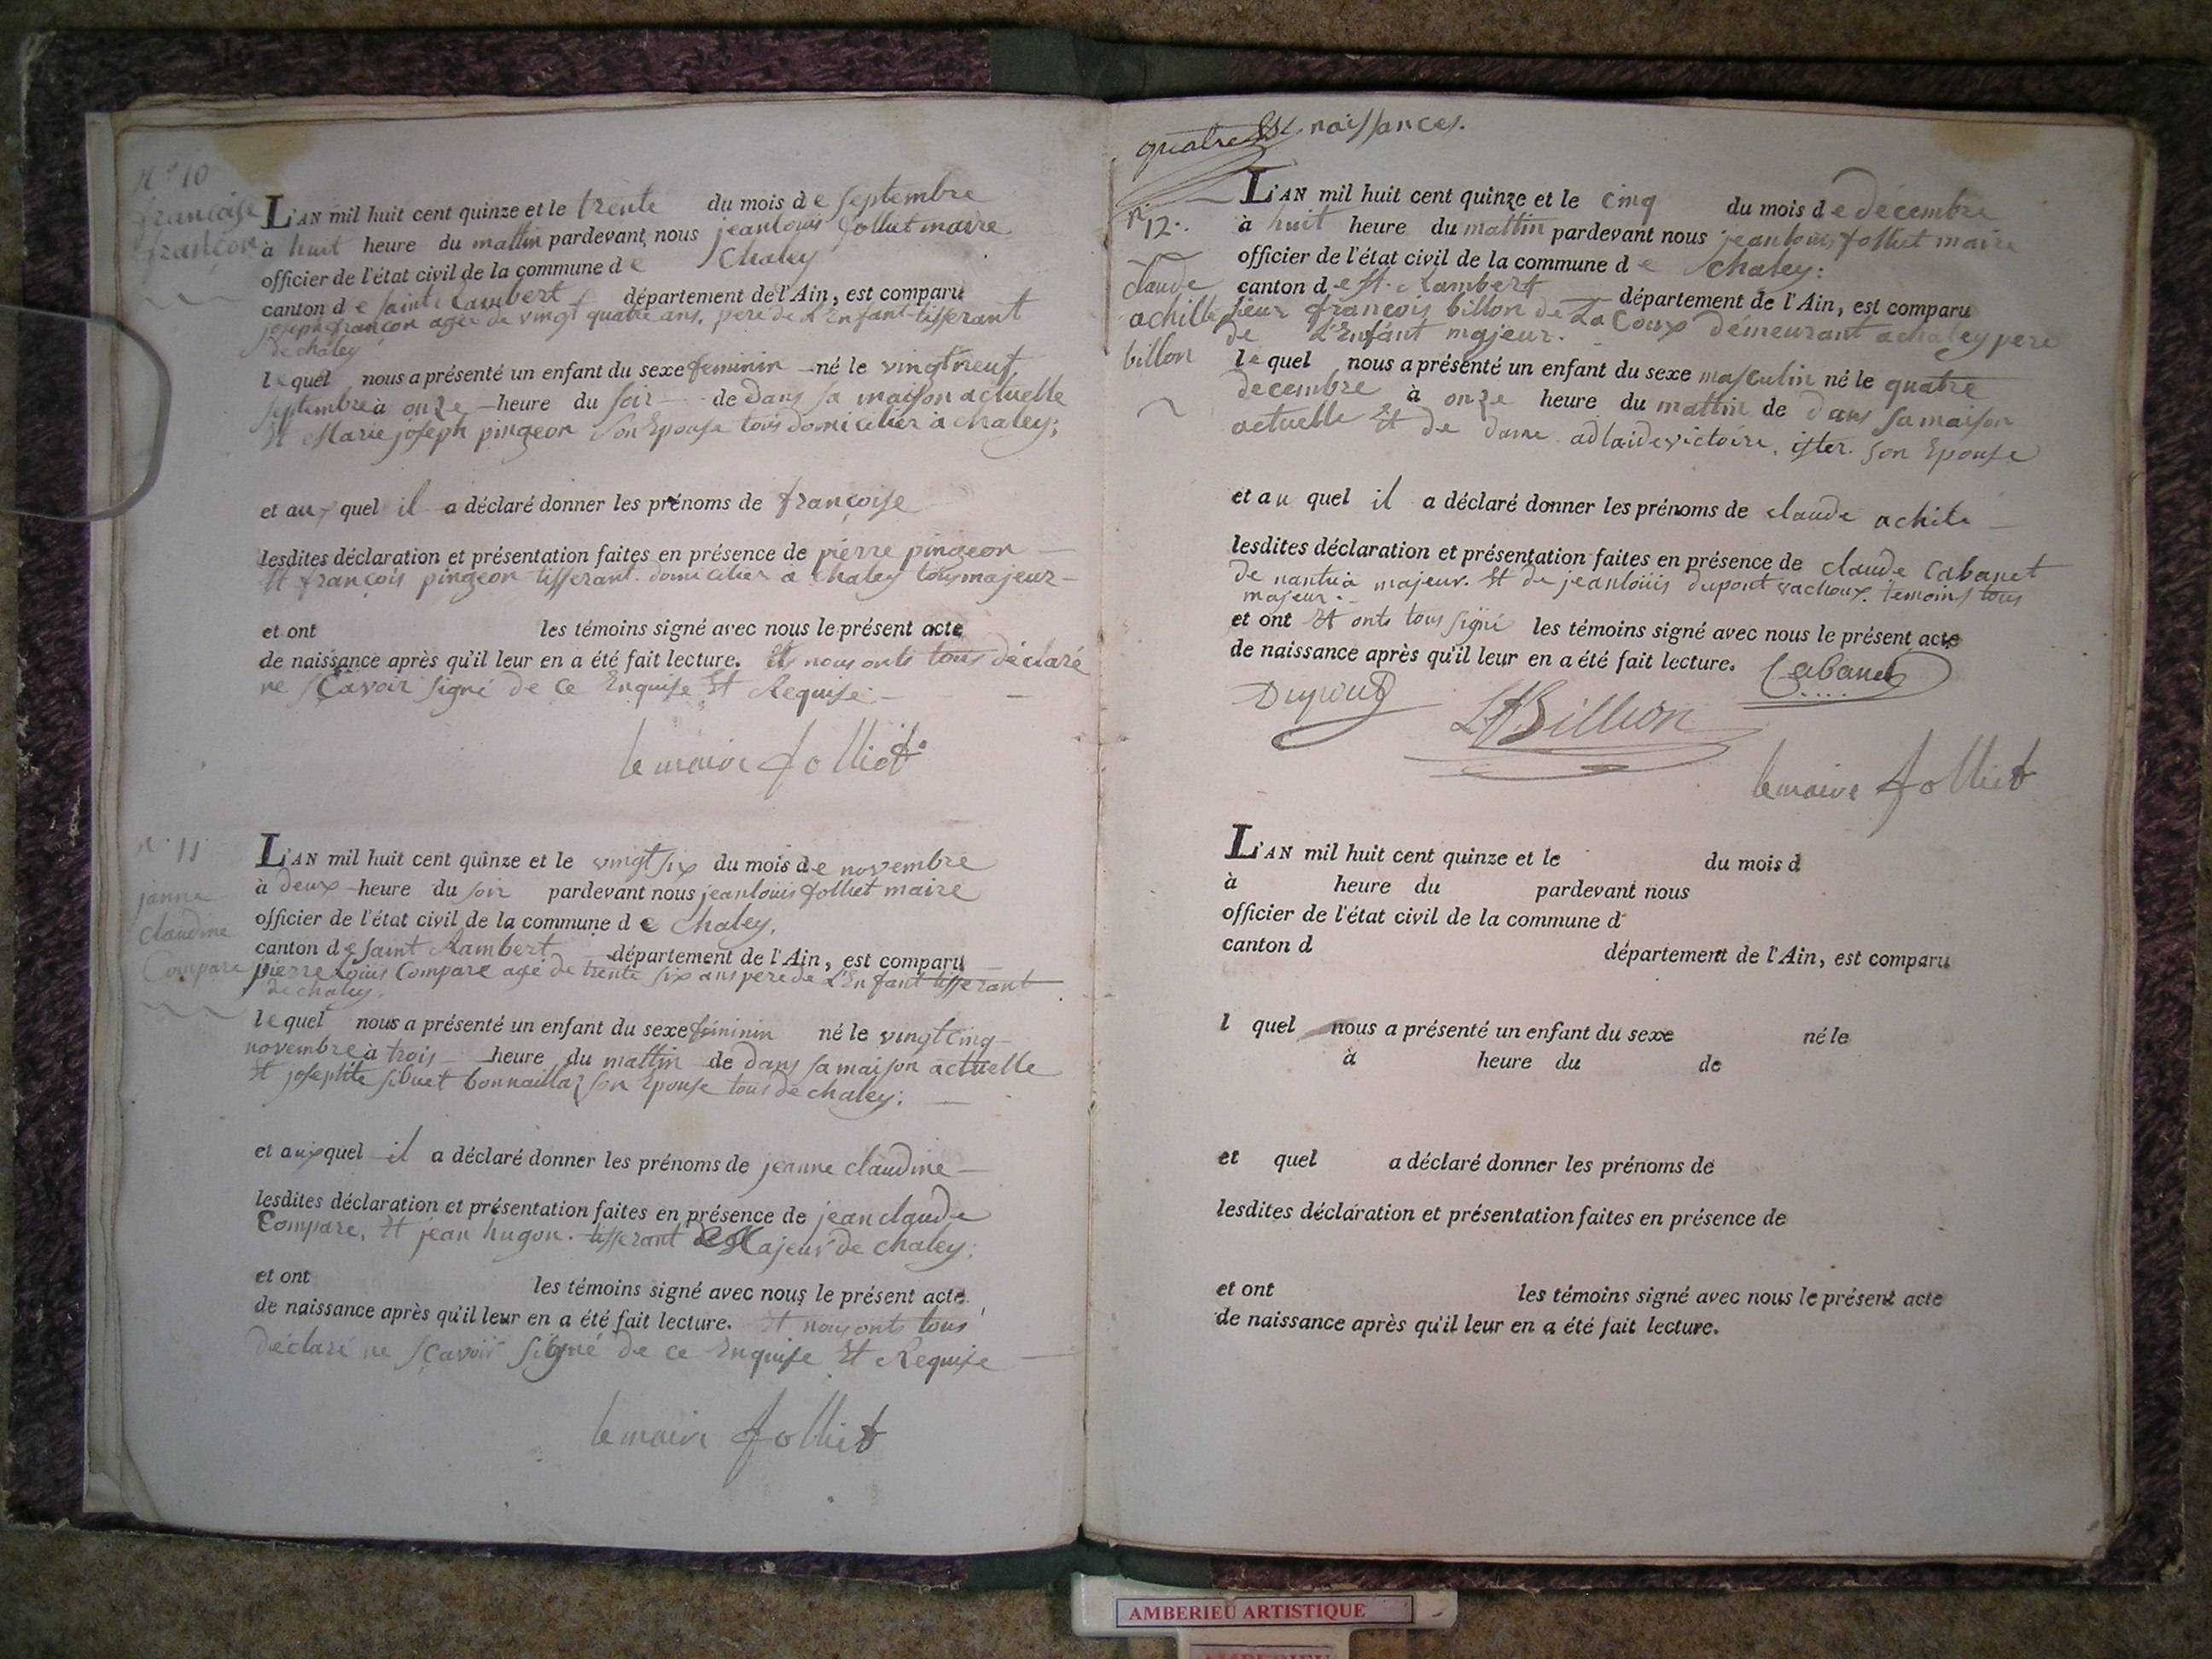 N° 10
françoise
françon
L'AN mil huit cent quinze et le trente du mois de septembre
à huit heure du mattin pardevant nous jeanlouis folliet maire
officier de l'état civil de la commune de Chaley
canton de saint Rambert département de l'Ain, est comparu
joseph françon agée de vingt quatre ans. pere de L'Enfant tisserant
de chaley
lequel nous a présenté un enfant du sexe feminin né le vingt neuf
septembre à onze heure du soir de dans sa maison actuelle
Et Marie joseph pingeon son Epouse tous domicilier à chaley;
et au quel il a déclaré donner les prénoms de françoise
lesdites déclaration et présentation faites en présence de pierre pingeon
Et françois pingeon tisserant domicilier a chaley tous majeur
et ont les témoins signé avec nous le présent acte
de naissance après qu'il leur en a été fait lecture. Et nous onts tous déclaré
ne sçavoir signé de ce Enquise Et Requise
le maire folliet
n° 11
janne
claudine
Compare
L'AN mil huit cent quinze et le vingt six du mois de novembre
à deux heure du soir pardevant nous jeanlouis folliet maire
officier de l'état civil de la commune de chaley,
canton de saint Rambert département de l'Ain, est comparu
pierre Louis Compare agé de trente six ans pere de L'Enfant tisserant
de chaley.
lequel nous a présenté un enfant du sexe féminin né le vingt cinq
novembre à trois heure du mattin de dans sa maison actuelle
Et josephte sibuet bonnaillaz son Epouse tous de chaley;
et aux quel il a déclaré donner les prénoms de jeanne claudine
lesdites déclaration et présentation faites en présence de jean claude
Compare, Et jean hugon. tisserant Majeur de chaley;
et ont les témoins signé avec nous le présent acte
de naissance après qu'il leur en a été fait lecture. Et nous onts tous
déclaré ne sçavoir signé de ce Enquise Et Requise
le maire folliet
quatre naissances.
n° 12
claude
achille
billon
L'AN mil huit cent quinze et le cinq du mois de décembre
à huit heure du mattin pardevant nous jeanlouis folliet maire
officier de l'état civil de la commune de chaley:
canton de St. Rambert département de l'Ain, est comparu
sieur françois billon de La Coux démeurant a chaley pere
de L'Enfant majeur.
lequel nous a présenté un enfant du sexe masculin né le quatre
decembre à onze heure du mattin de dans sa maison
actuelle Et de dame adlaide victoire. ister. son Epouse
et au quel il a déclaré donner les prénoms de claude achile
lesdites déclaration et présentation faites en présence de claude Cabanet
de nantua majeur. Et de jeanlouis dupont vachoux. témoins tous
majeur
et ont Et onts tous signé les témoins signé avec nous le présent acte
de naissance après qu'il leur en a été fait lecture.
Cabanet
Dupont
Billion
le maire folliet
L'AN mil huit cent quinze et le du mois d
à heure du pardevant nous
officier de l'état civil de la commune d
canton d département de l'Ain, est comparu
l quel nous a présenté un enfant du sexe né le
à heure du de
et quel a déclaré donner les prénoms de
lesdites déclaration et présentation faites en présence de
et ont les témoins signé avec nous le présent acte
de naissance après qu'il leur en a été fait lecture.
AMBERIEU ARTISTIQUE
AMBERIEU